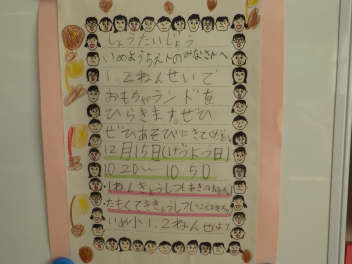 しょうたいじょう
いめようちえんのみなさんへ
1、2ねんせいで
おもちゃランドを
ひらきます。ぜひ
ぜひあそびにきてください。
12月15日(げつよう日)
10:20〜10:50
・1ねんきょうしつ
・たもくてききょうしつ
いめ小1、2ねんせいより